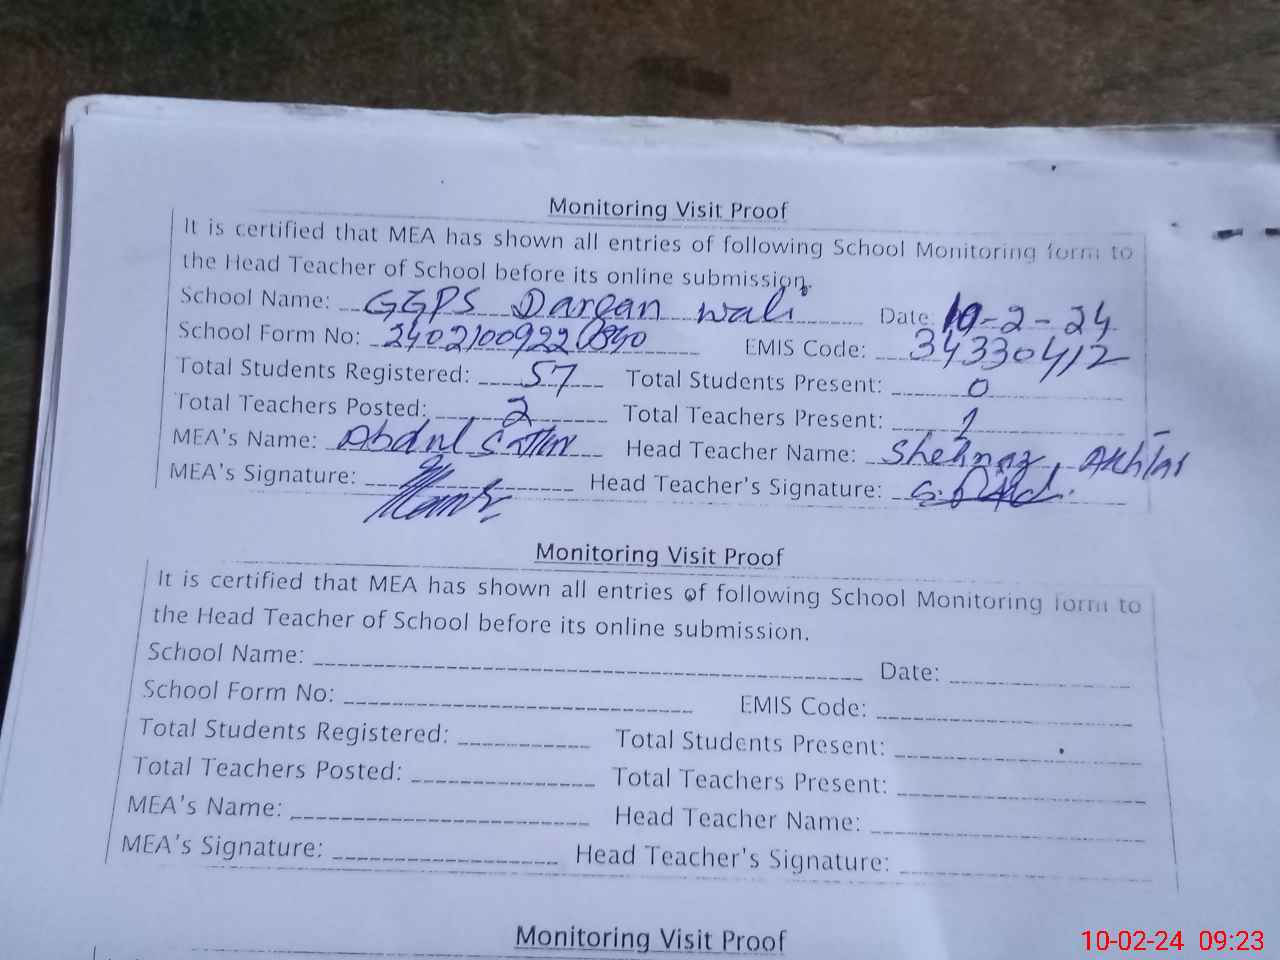 Monitoring Visit Proof
It is certified that MEA has shown all entries of following School Monitoring form to
the Head Teacher of School before its online submission.
School Name: GGPS Dargan wali Date 10-2-24
School Form No: EMIS Code: 34330412
Total Students Registered: 57 Total Students Present: 0
Total Teachers Posted: 2 Total Teachers Present: 1
MEA's Name: Abdul Sattar Head Teacher Name: Shehnaz Akhtar
MEA's Signature: Head Teacher's Signature:
Monitoring Visit Proof
It is certified that MEA has shown all entries of following School Monitoring form to
the Head Teacher of School before its online submission.
School Name: Date:
School Form No: EMIS Code:
Total Students Registered: Total Students Present:
Total Teachers Posted: Total Teachers Present:
MEA's Name: Head Teacher Name:
MEA's Signature: Head Teacher's Signature:
Monitoring Visit Proof
10-02-24 09:23